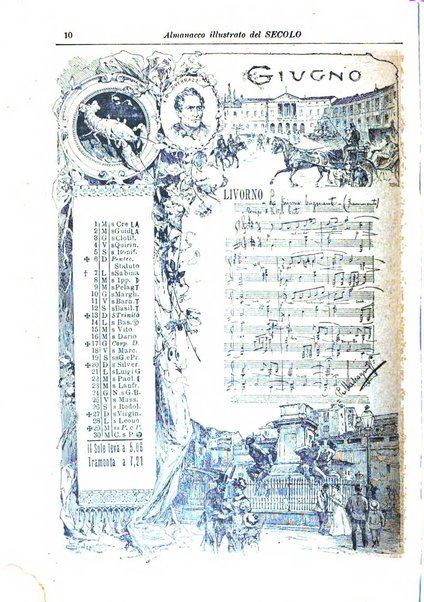 10 Almanacco illustrato del SECOLO
GIUGNO
LIVORNO
1 M s Cre
2 M s Guid
3 G s Clotil.
4 V s Quirin.
5 S s Bonif.
✠ 6 D Pentec.
Statuto
† 7 L s Sabina
8 M s Ipp.
9 M s Pelag
10 G s Margh.
11 V s Barn.
12 S s Basil.
✠ 13 D S Trinità
14 L s Bas.
15 M s Vito
16 M s Dario
✠ 17 G Corp. D.
18 V s Marc.
19 S ss G. e Pr.
✠ 20 D s Silver.
21 L s Luigi G
22 M s Paol.
23 M s Lanfr.
24 G N. s G. B.
25 V s Mass.
26 S s Rodol.
✠ 27 D s Virgin.
28 L s Leone
✠ 29 M ss P. e P.
30 M C. s P
il Sole leva a 5,06
Tramonta a 7,21